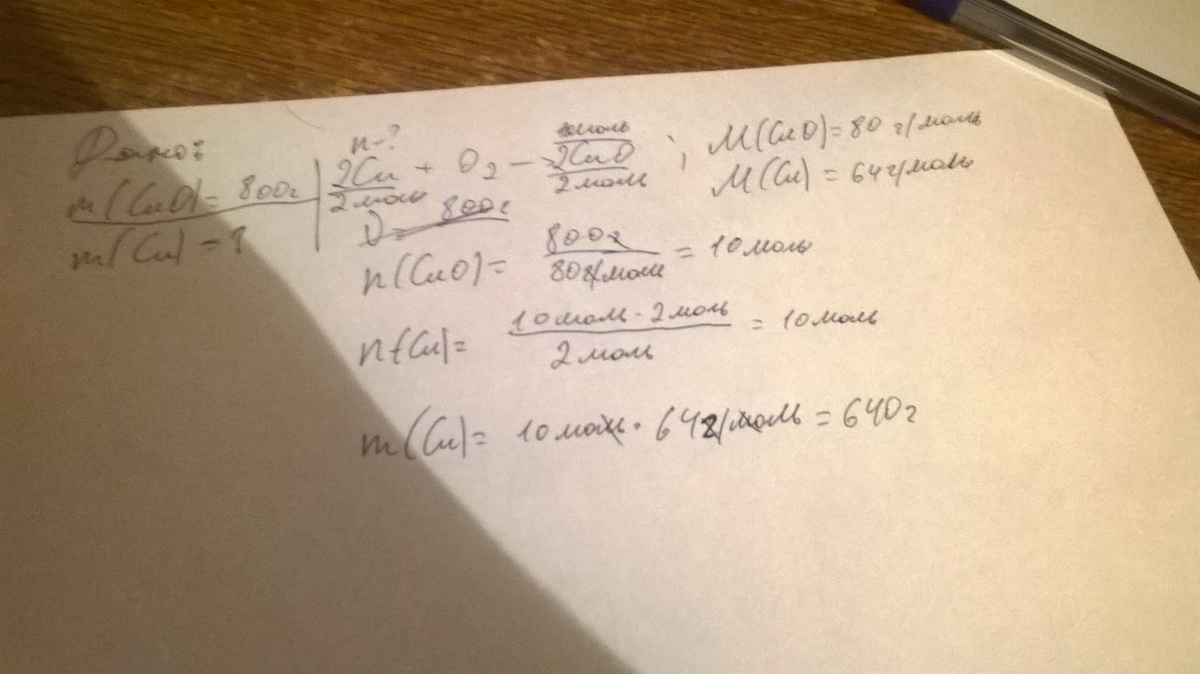 Дано:
m(CuO) = 800г
m(Cu) = ?
n-?
2Cu + O2 → 2CuO ; M(CuO) = 80 г/моль
2моль 2моль M(Cu) = 64г/моль
800г
n(CuO) = 800г / 80г/моль = 10моль
n(Cu) = 10моль · 2моль / 2моль = 10моль
m(Cu) = 10моль · 64г/моль = 640г